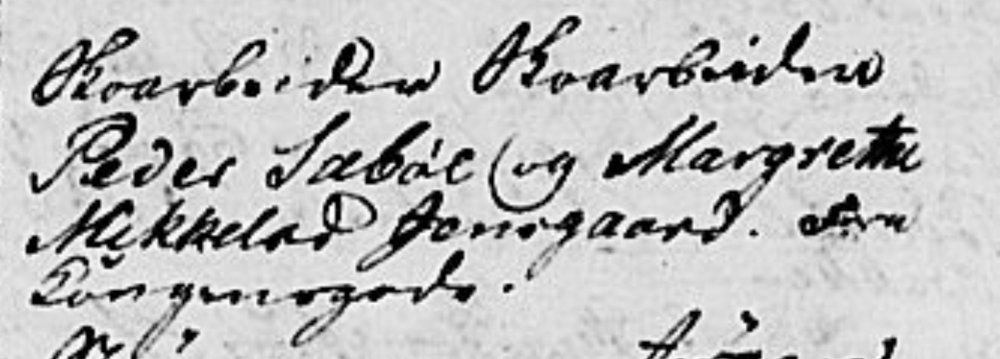 Skoarbeider Skoarbeider
Peder Sæbøe og Margrethe
Mikkelsd Jonsgaard. Fra
Kongensgade.